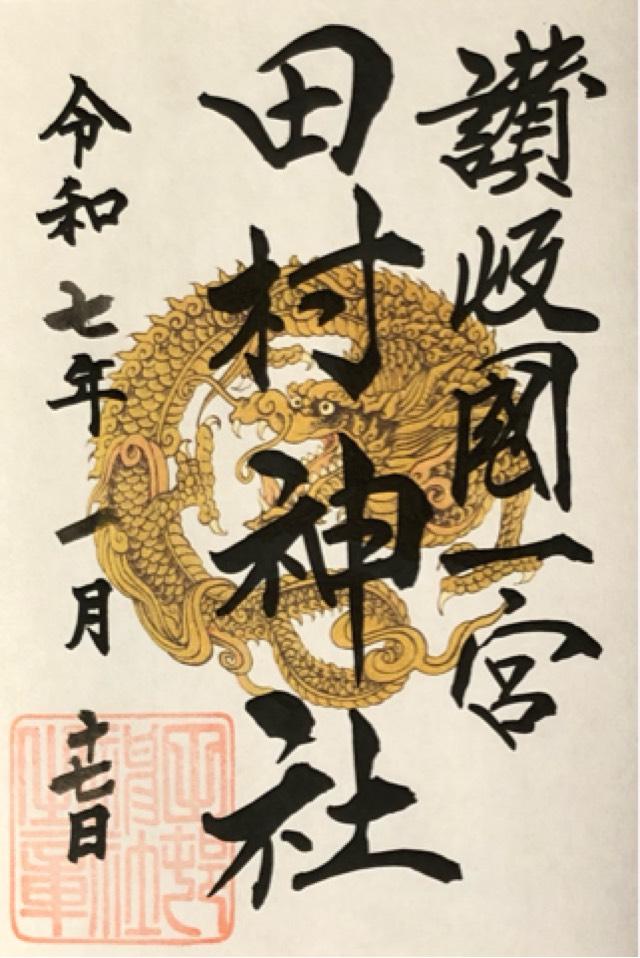 讃岐國一宮
田村神社
令和七年一月十七日